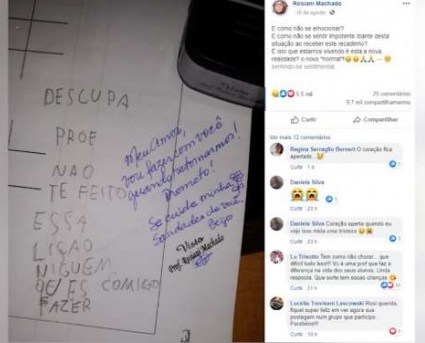 DESCUPA
PROF
NAO
TE FEITO
ESSA
LIÇAO
NIGUEM
COMIGO
FAZER
Meu Amor,
vou fazer com você
quando retornarmos!
Prometo!
Se cuida minha
Saudades de você.
Beijo
Visto
Prof. Rosiani Machado
Rosiani Machado
16 de agosto
E como não se emocionar?
E como não se sentir impotente diante desta
situação ao receber este recadinho?
E isto que estamos vivendo é esta a nova
realidade? o novo "normal"!
sentindo-se sentimental.
5,5 mil
29 comentários
9,7 mil compartilhamentos
Curtir
Compartilhar
Ver mais 12 comentários
O coração fica
apertado...
Curtir
Daniela Silva
Curtir
Daniela Silva Coração aperta quando eu
vejo isso mida uma tristeza
Curtir 21 h
Tem como não chorar... que
difícil tudo isso!!! Vc é uma prof que faz a
diferença na vida dos seus alunos. Linda
resposta. Que tem essas crianças
Curtir 23 h
Rosi querida,
fiquei super feliz em ver agora sua
postagem num grupo que participo
Parabéns!!!
Curtir